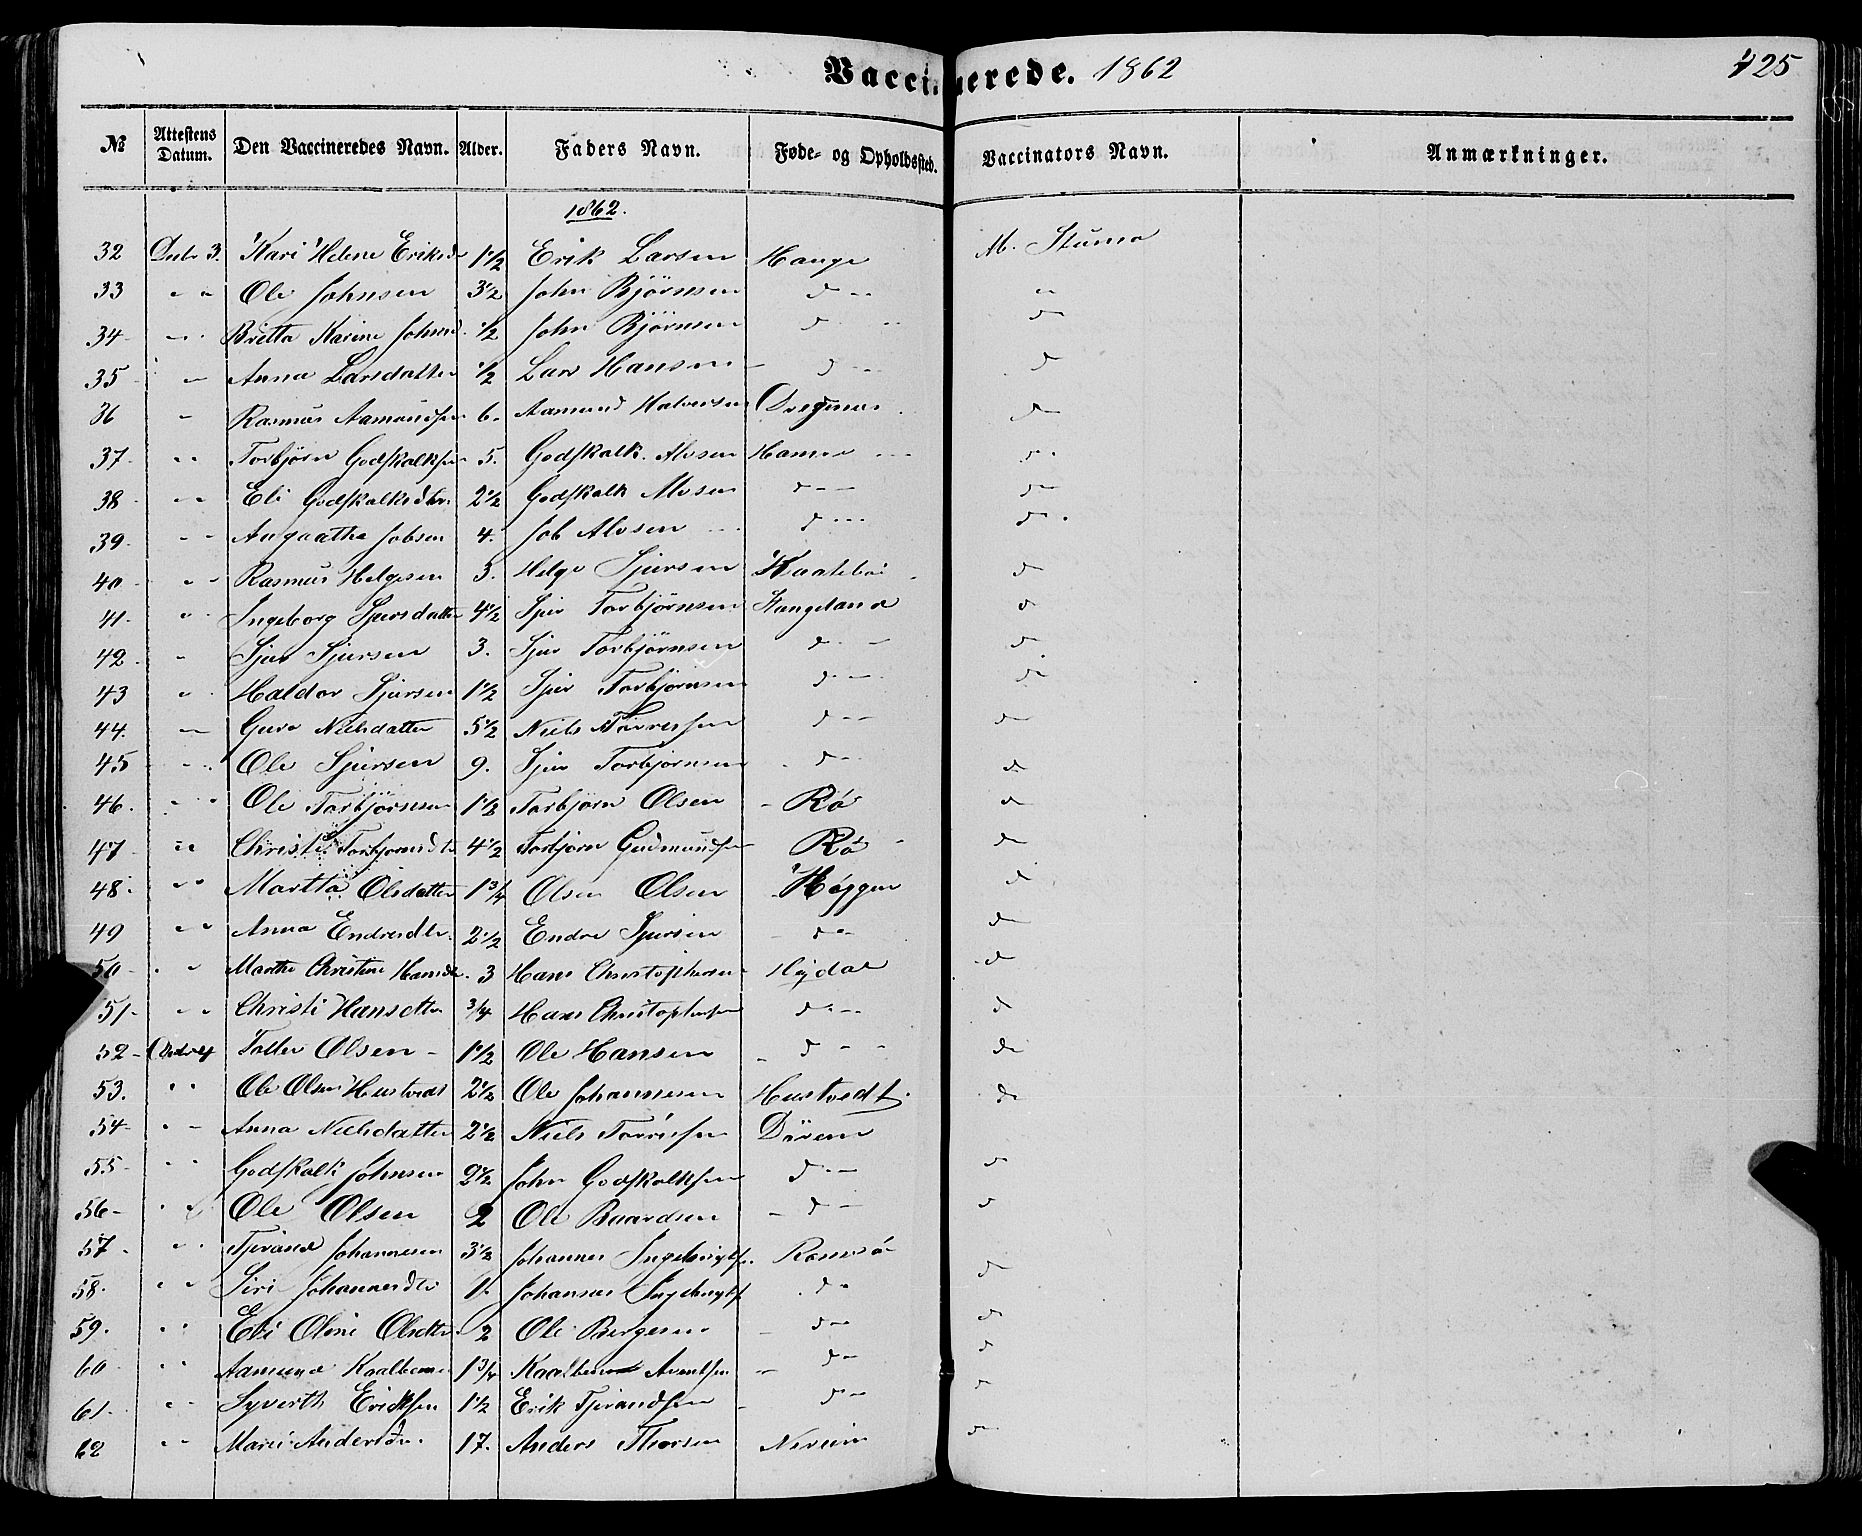 Vaccinerede. 1862 425
№ Attestens Datum. Den Vaccineredes Navn. Alder. Faders Navn. Føde- og Opholdssted. Vaccinators Navn. Anmærkninger.
1862.
32 3. Kari Helene Eriksd 1 1/2 Erik Larsen Hauge M.
33 " " Ole Johnsen 3 1/2 John Bjørnsen d " "
34 " " Britta Karine Johnsd. 1/2 John Bjørnsen d " d
35 " Anna Larsdatter 1/2 Lars Hansen d d
36 " Rasmus Aamundsen 6. Aamund Halversen d
37 " " Torbjørn Godskalksen 5. Godskalk Alvsen d
38 " " Eli Godskalksdtr. 2 1/2 Godskalk Alvsen d d
39 " " Jobsen 4. Job Alvsen d d
40 " " Rasmus Helgesen 5. Helge Sjursen d
41 " " Ingeborg Sjursdatter 4 1/2 Sjur Torbjørnsen Hangeland d
42 " Sjur Sjursen 3. Sjur Torbjørnsen d d
43 " Haldor Sjursen 1 1/2 Sjur Torbjørnsen d d
44. " Guro Nielsdatter 5 1/2 Niels d d
45 " Ole Sjursen 9. Sjur Torbjørnsen d d
46. " " Ole Torbjørnsen 1 1/2 Torbjørn Olsen Rø d
47 " " Christi Torbjørnsdtr 4 1/2 Torbjørn Gudmundsen Rø d
48. " " Martha Olsdatter 1 3/4 Olsen Olsen d
49 " " Anna Endresdtr. 2 1/2 Endre Sjursen d d
50 " " Marthe Christine Hansdtr. 3 Hans Christophersen d
51 " " Christi Hansdtr 3/4 Hans Christophersen d d
52 Olsen 1 1/2 Ole Hansen d d
53. " " Ole Olsen Hustvedt 2 1/2 Ole Johannesen Hustvedt. d
54 " " Anna Nielsdatter 2 1/2 Niels
55 " " Godskalk Johnsen 9 1/2 John Godskalksen d d
56 " " Ole Olsen 2 Ole Baardsen d d
57 " " Tjerand Johannesen 3 1/2 Johannes Ramsø
58. " " Siri Johannesdtr 1. Johannes d d
59. " " Eli Oline Olsdtr. 2 Ole Bergesen d d
60 " " Aamund 1 3/4 d d
61 " " Syverth Eriksen 1 1/2 Erik Tjerandsen d d
62 " " Andersdtr. 17. Anders Thorsen d